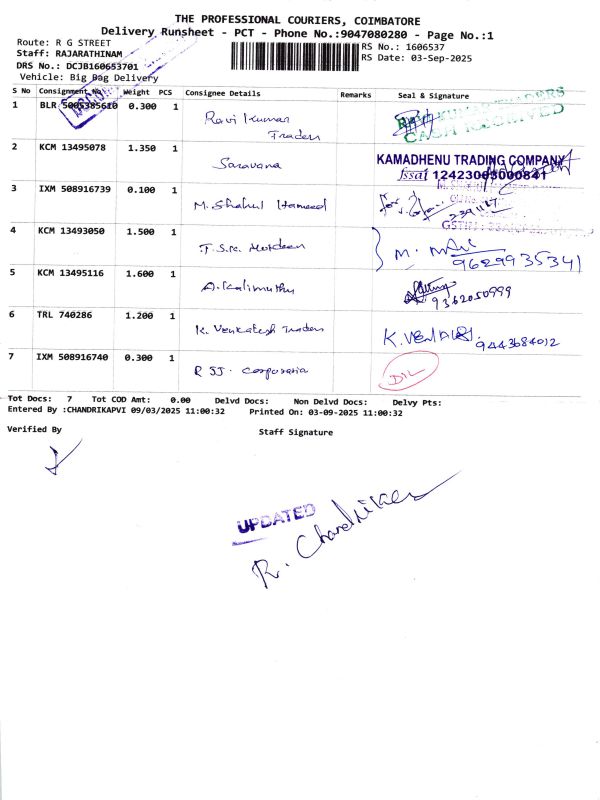 THE PROFESSIONAL COURIERS, COIMBATORE
Delivery Runsheet - PCT - Phone No.:9047080280 - Page No.:1
Route: R G STREET
Staff: RAJARATHINAM
DRS No.: DCJB160653701
Vehicle: Big Bag Delivery
RS No.: 1606537
RS Date: 03-Sep-2025
S No Consignment No Weight PCS Consignee Details Remarks Seal & Signature
1 BLR 5005385610 0.300 1 Ravi Kumar
Traders
CASH RECEIVED
2 KCM 13495078 1.350 1 Saravana
KAMADHENU TRADING COMPANY
fssai 12423003000841
3 IXM 508916739 0.100 1 M. Shahul Hameed
for
4 KCM 13493050 1.500 1 T.S.M. M. 
9629935341
5 KCM 13495116 1.600 1 A. Kalimuthu
9362050999
6 TRL 740286 1.200 1 K. Venkatesh Traders
K. 9443684012
7 IXM 508916740 0.300 1 R SJ. Corporatia
D/L
Tot Docs: 7 Tot COD Amt: 0.00 Delvd Docs: Non Delvd Docs: Delvy Pts:
Entered By :CHANDRIKAPVI 09/03/2025 11:00:32 Printed On: 03-09-2025 11:00:32
Verified By Staff Signature
UPDATED
R. Chandrika